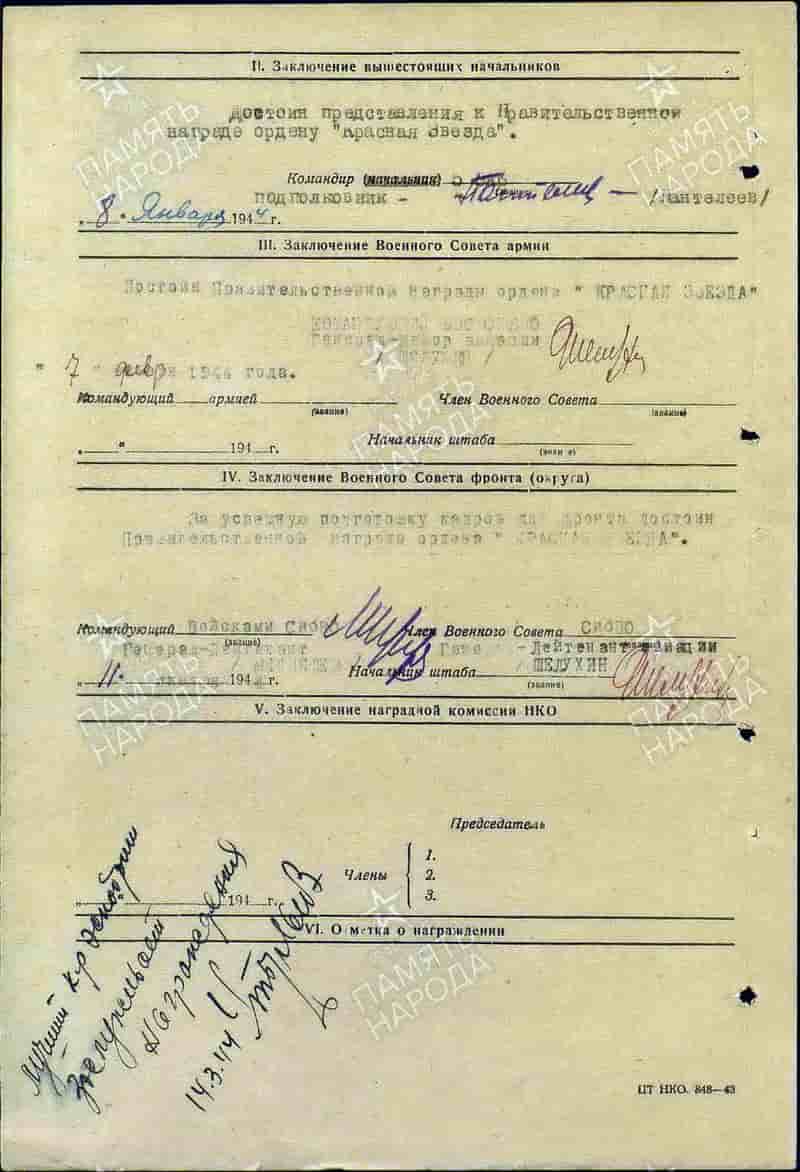 II. Заключение вышестоящих начальников
Достоин представления к Правительственной
награде ордену "Красная Звезда".
Командир (начальник)
подполковник - /Пантелеев/
„8" Января 1944 г.
III. Заключение Военного Совета армии
Достоин Правительственной награды ордена " КРАСНАЯ ЗВЕЗДА"
генерал-майор авиации
/ ШЕЛУХИН /
" 7 " 1944 года.
Командующий армией Член Военного Совета
(звание) (звание)
„ " 194 г. Начальник штаба
(звание)
IV. Заключение Военного Совета фронта (округа)
За успешную подготовку кадров для фронта достоин
Правительственной награды ордена " КРАСНАЯ ЗВЕЗДА".
Командующий Войсками СибВО Член Военного Совета СибВО
(звание)
Генерал-Лейтенант Ген -Лейтенант авиации
„ 11. 1944 г. Начальник штаба / ШЕЛУХИН
(звание)
V. Заключение наградной комиссии НКО
Председатель
Члены
1.
2.
3.
„ " 194 г.
VI. Отметка о награждении
Лучший
Заслуживает
награждения
14.3.44
ЦТ НКО. 848—43
ПАМЯТЬ НАРОДА
ПАМЯТЬ НАРОДА
ПАМЯТЬ НАРОДА
ПАМЯТЬ НАРОДА
ПАМЯТЬ НАРОДА
ПАМЯТЬ НАРОДА